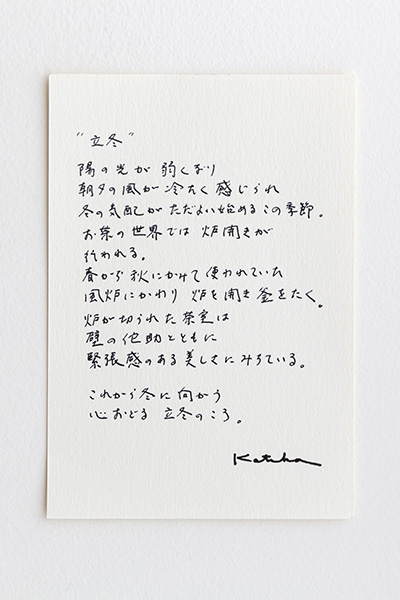 "立冬"
陽の光が 弱くなり
朝夕の風が 冷たく 感じられ
冬の気配が ただよい始める この季節。
お茶の世界では 炉開きが
行われる。
春から 秋にかけて 使われていた
風炉にかわり 炉を開き 釜をたく。
炉が切られた 茶室は
壁の 侘助とともに
緊張感のある 美しさに みちている。
これから 冬に 向かう
心おどる 立冬のころ。